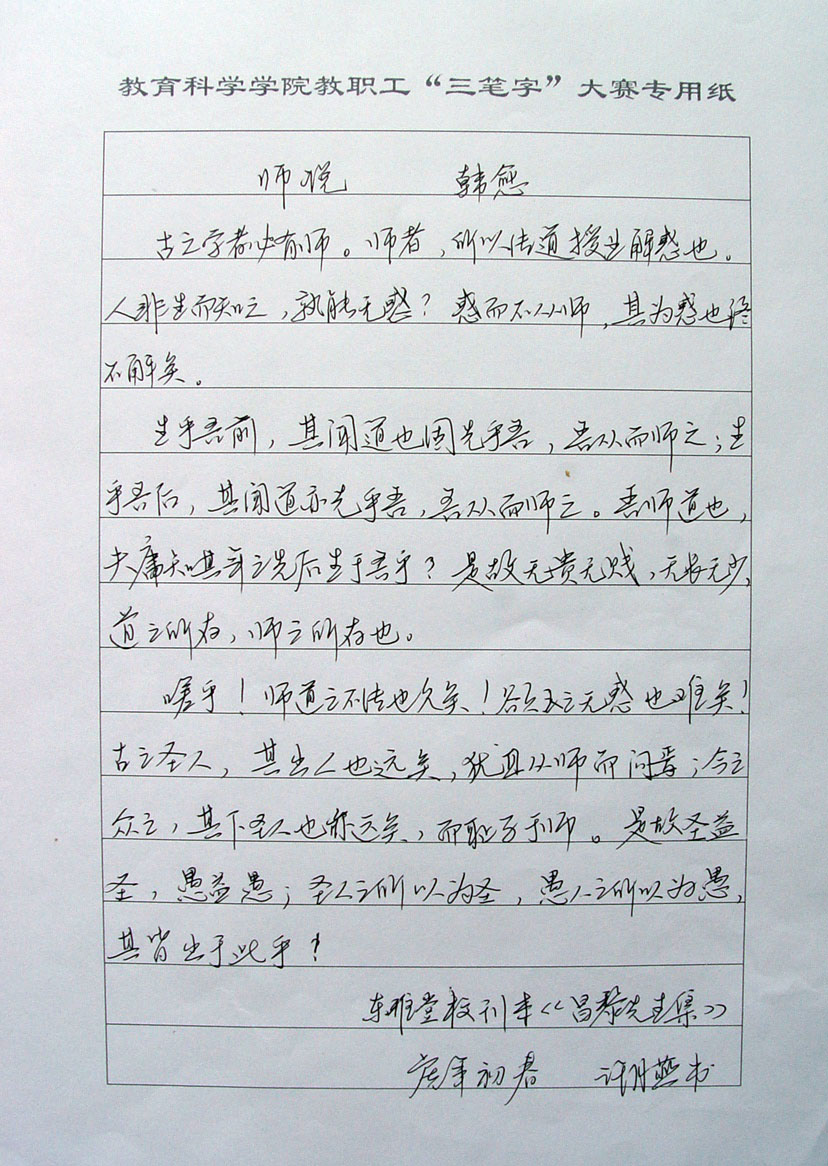 教育科学学院教职工“三笔字”大赛专用纸
师说 韩愈
古之学者必有师。师者，所以传道授业解惑也。
人非生而知之，孰能无惑？惑而不从师，其为惑也终
不解矣。
生乎吾前，其闻道也固先乎吾，吾从而师之；生
乎吾后，其闻道亦先乎吾，吾从而师之。吾师道也，
夫庸知其年之先后生于吾乎？是故无贵无贱，无长无少，
道之所存，师之所存也。
嗟乎！师道之不传也久矣！欲人之无惑也难矣！
古之圣人，其出人也远矣，犹且从师而问焉；今之
众人，其下圣人也亦远矣，而耻学于师。是故圣益
圣，愚益愚；圣人之所以为圣，愚人之所以为愚，
其皆出于此乎？
东雅堂校刊本《昌黎先生集》
年初春 书